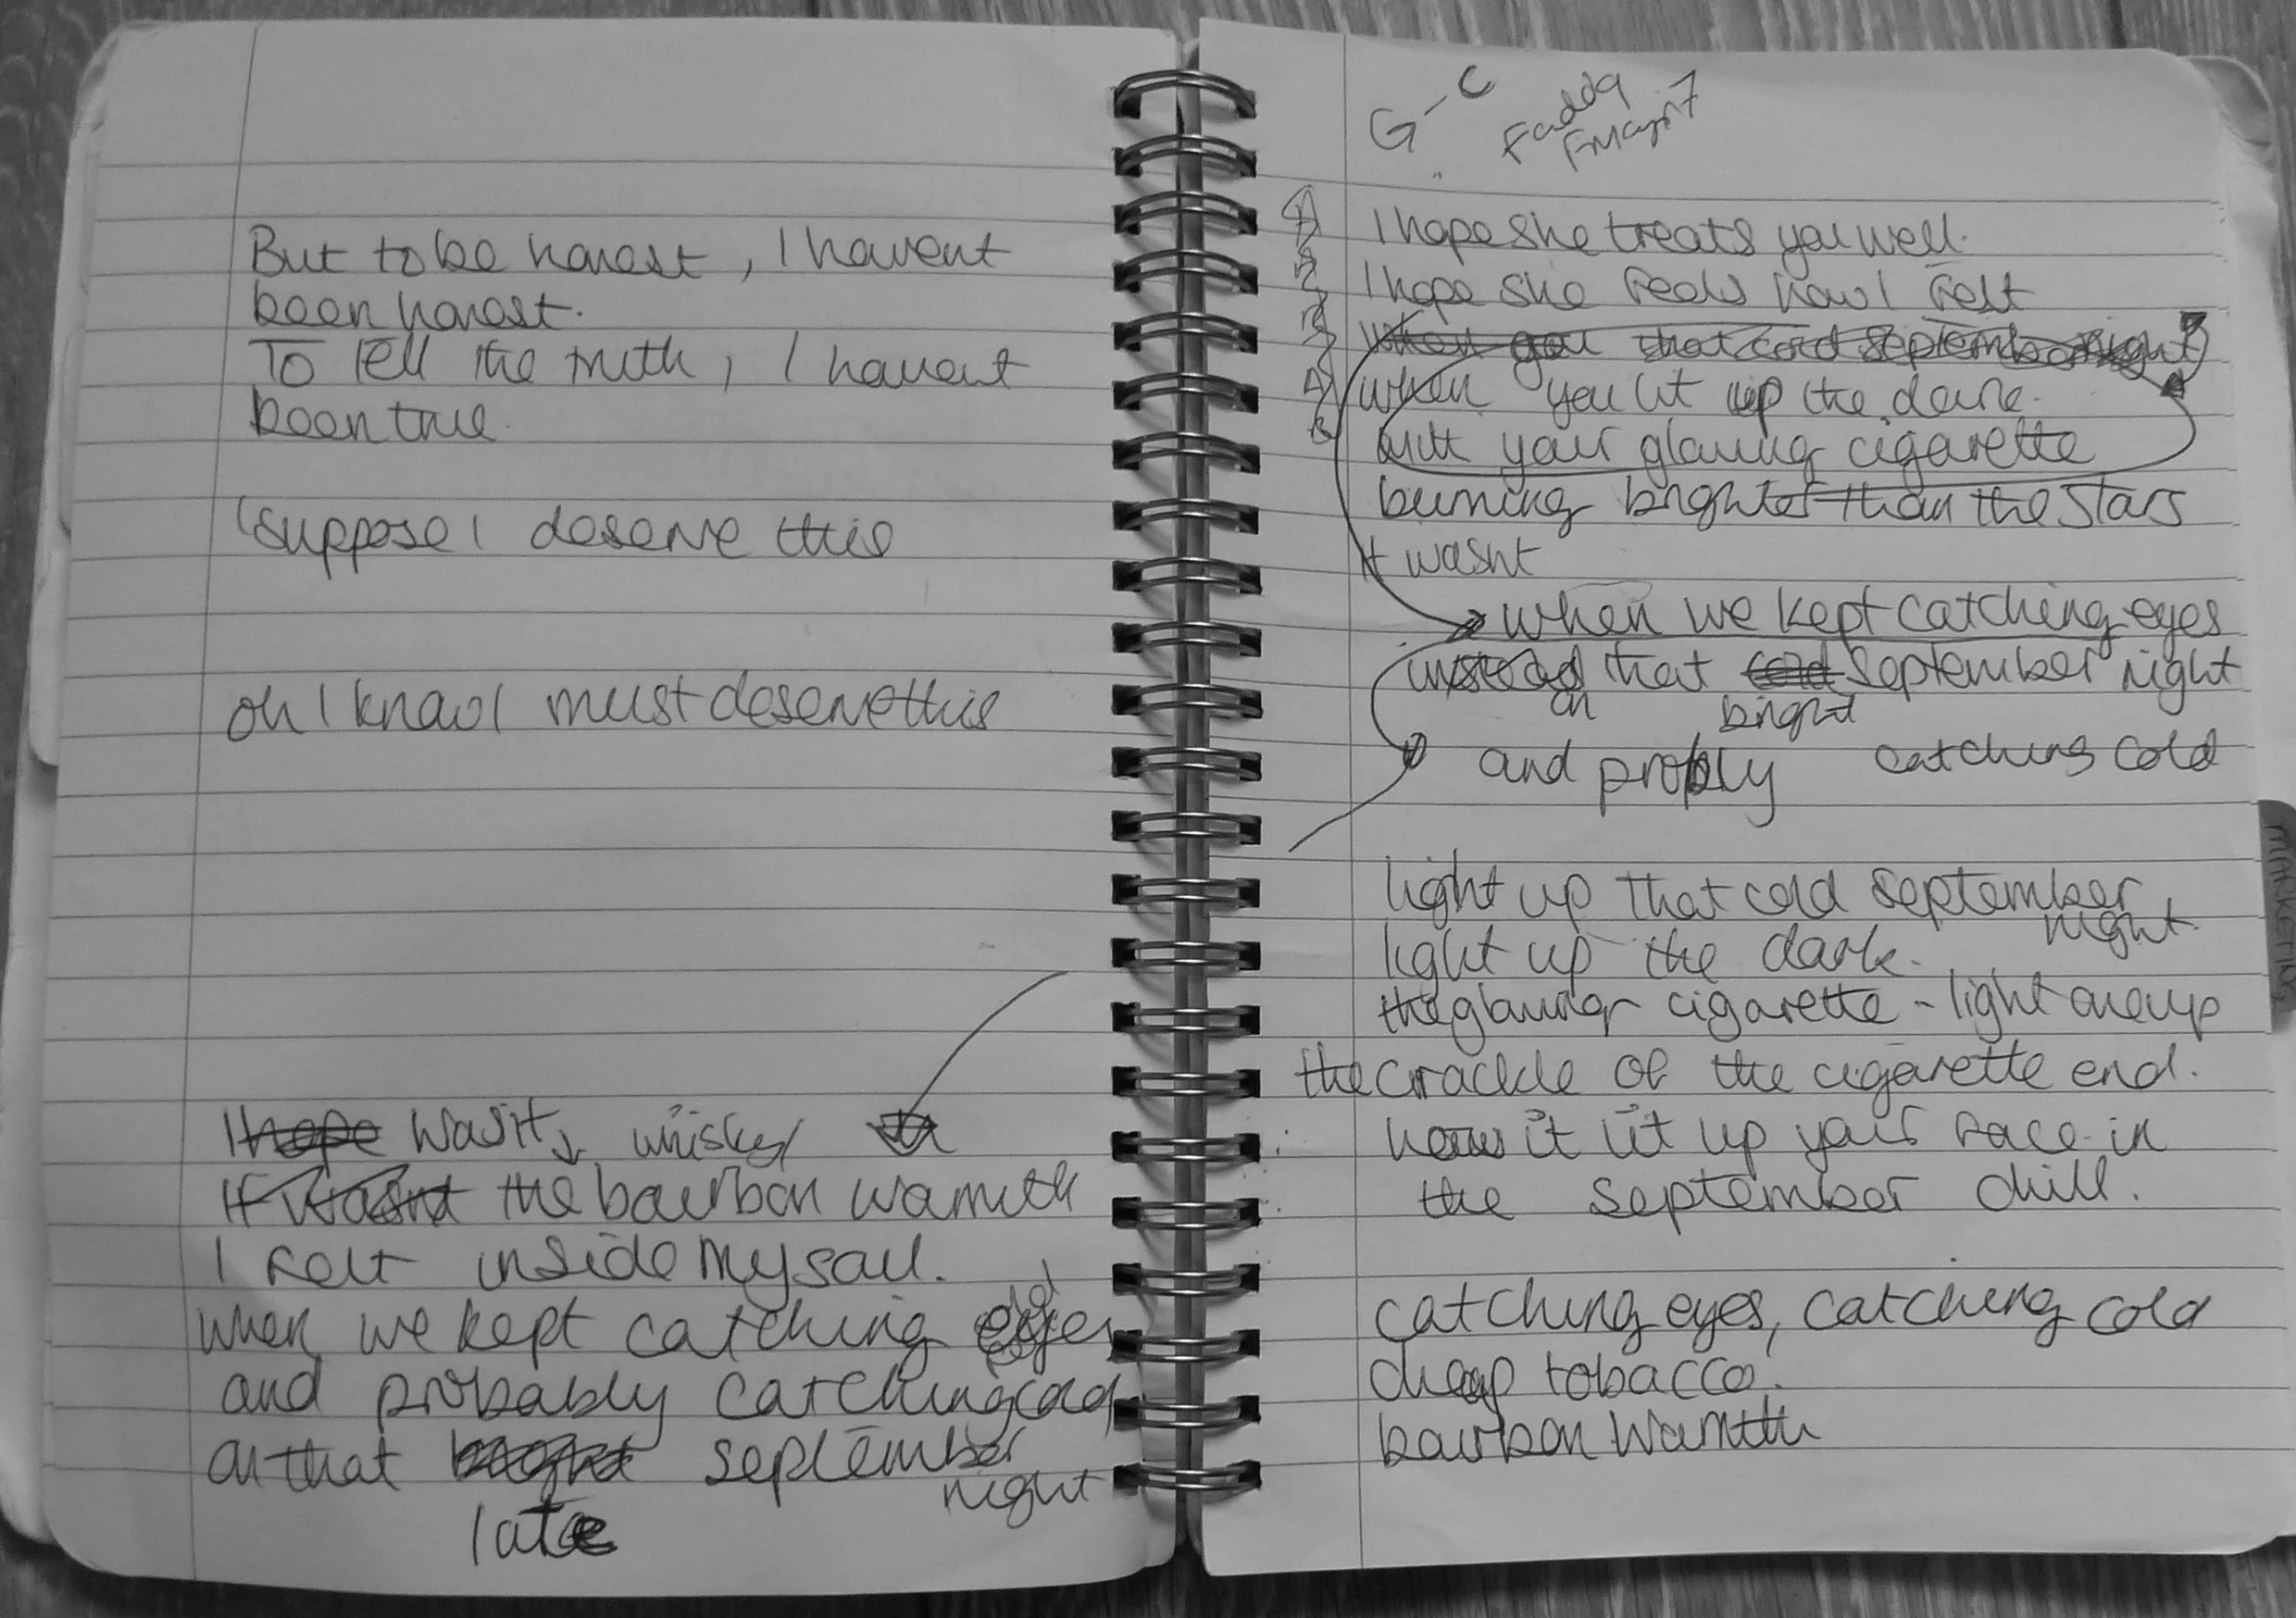 But to be honest, I havent
been honest.
To tell the truth, I havent
been true.
I suppose I deserve this
oh I know I must deserve this
I hope wasit whiskey
If it wasnt the bourbon warmth
I felt inside my soul.
when we kept catching eyes
and probably catching cold
on that bright september
night
late
G - C
Fadd9
Fmaj7
I hope she treats you well.
I hope she feels how I felt
when you that cold september night
when you lit up the dark.
with your glowing cigarette
burning brighter than the stars
it wasnt
when we kept catching eyes
instead that cold september night
on bright
and probly catching cold
light up that cold september
night.
light up the dark.
the glowing cigarette - light one up
the crackle of the cigarette end.
how it lit up your face in
the september chill.
catching eyes, catching cold
cheap tobacco.
bourbon warmth
MARKETING